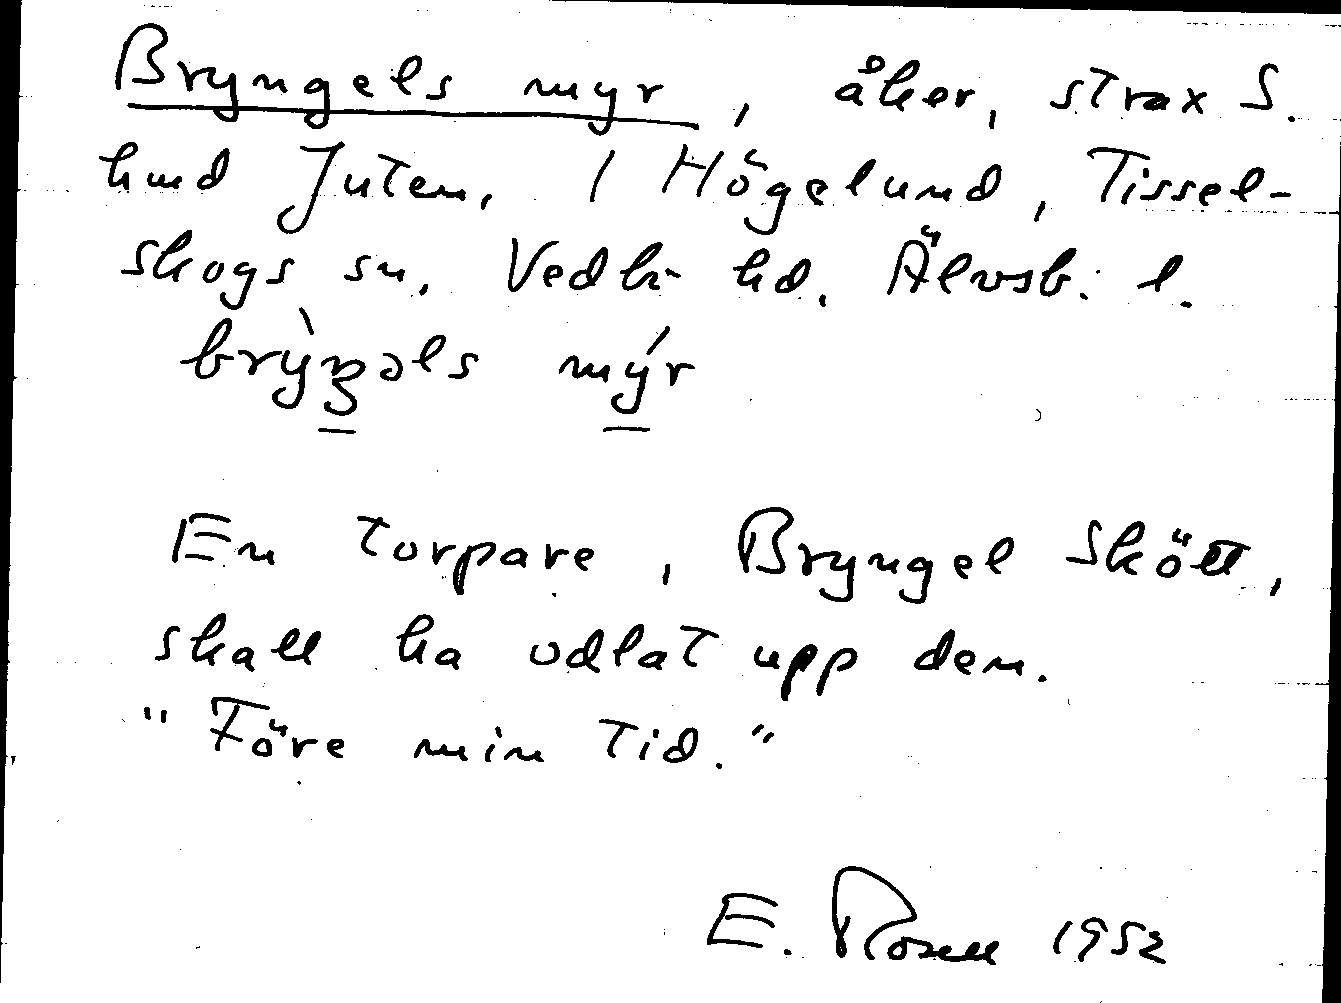 Bryngels myr, åker, strax S.
hmd Juten, 1 Högelund, Tissel-
skogs sn, Vedbo hd, Älvsb. l.
brỳŋəls mýr
En torpare, Bryngel Skött,
skall ha odlat upp den.
"Före min tid."
E. Rosell 1952